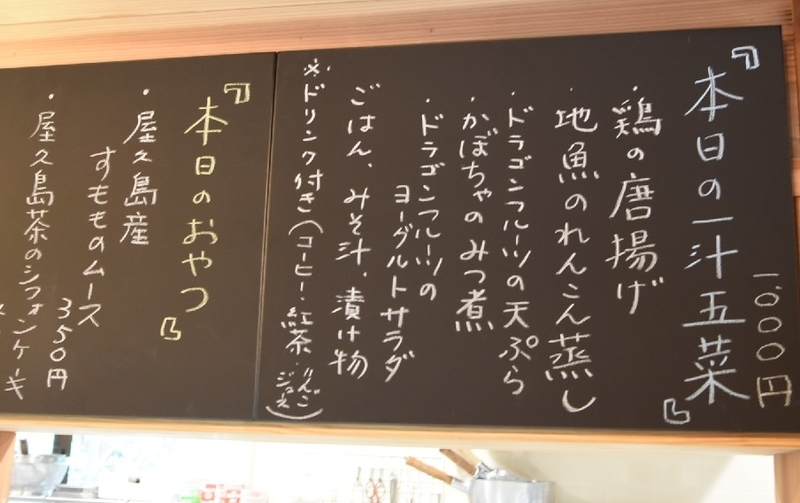 『本日の一汁五菜』
1,000円
・鶏の唐揚げ
・地魚のれんこん蒸し
・ドラゴンフルーツの天ぷら
・かぼちゃのみつ煮
・ドラゴンフルーツの
ヨーグルトサラダ
ごはん、みそ汁、漬け物
※ドリンク付き(コーヒー・紅茶・りんごジュース)
『本日のおやつ』
・屋久島産
すもものムース
350円
・屋久島茶のシフォンケーキ